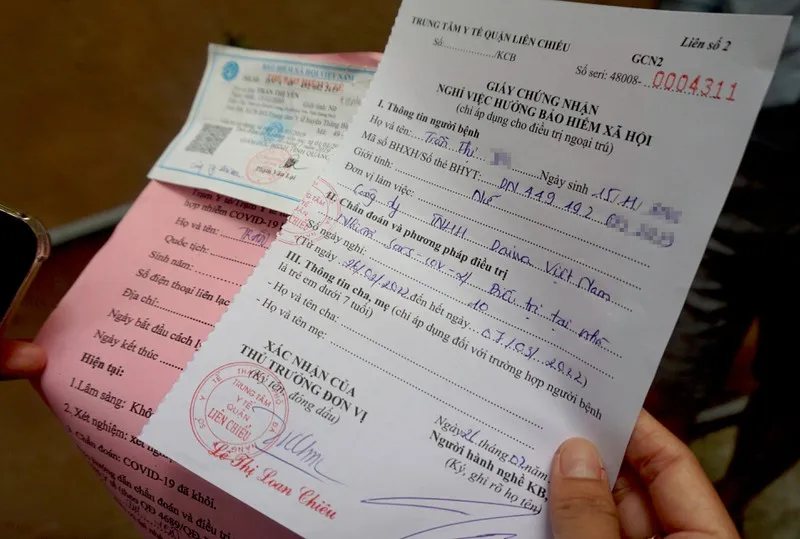 TRUNG TÂM Y TẾ QUẬN LIÊN CHIỂU
Số:............/KCB
Liên số 2
GCN2
Số seri: 48008- 0004311
GIẤY CHỨNG NHẬN
NGHỈ VIỆC HƯỞNG BẢO HIỂM XÃ HỘI
(chỉ áp dụng cho điều trị ngoại trú)
I. Thông tin người bệnh
Họ và tên: Trần Thị Ngày sinh 15/11/
Mã số BHXH/Số thẻ BHYT: DN 449 192
Giới tính: Nữ
Đơn vị làm việc: Công ty TNHH Daiwa Việt Nam
II. Chẩn đoán và phương pháp điều trị
Nhiễm Sars-cov-2/ Điều trị tại nhà
Số ngày nghỉ: 10
(Từ ngày 26/02/2022 đến hết ngày 07/03/2022)
III. Thông tin cha, mẹ (chỉ áp dụng đối với trường hợp người bệnh
là trẻ em dưới 7 tuổi)
- Họ và tên cha:
- Họ và tên mẹ:
XÁC NHẬN CỦA
THỦ TRƯỞNG ĐƠN VỊ
(Ký tên, đóng dấu)
TRUNG TÂM
Y TẾ
QUẬN
LIÊN CHIỂU
Lê Thị Loan Chiêu
Ngày 26 tháng 02 năm
Người hành nghề KB,
(Ký, ghi rõ họ tên)
BẢO HIỂM XÃ HỘI VIỆT NAM
TRẦN THỊ YẾN
Giới tính: Nữ
Trạm Y tế/Trạm Y tế
hợp nhiễm COVID-19
Họ và tên: Trần
Quốc tịch:
Sinh năm:
Số điện thoại liên lạc
Địa chỉ:
Ngày bắt đầu cách ly
Ngày kết thúc
Hiện tại:
1.Lâm sàng: Khô
2. Xét nghiệm: xét ngh
3. Chẩn đoán: COVID-19 đã khỏi.
hướng dẫn chẩn đoán và điều trị
y tế (theo QĐ 4689/QĐ